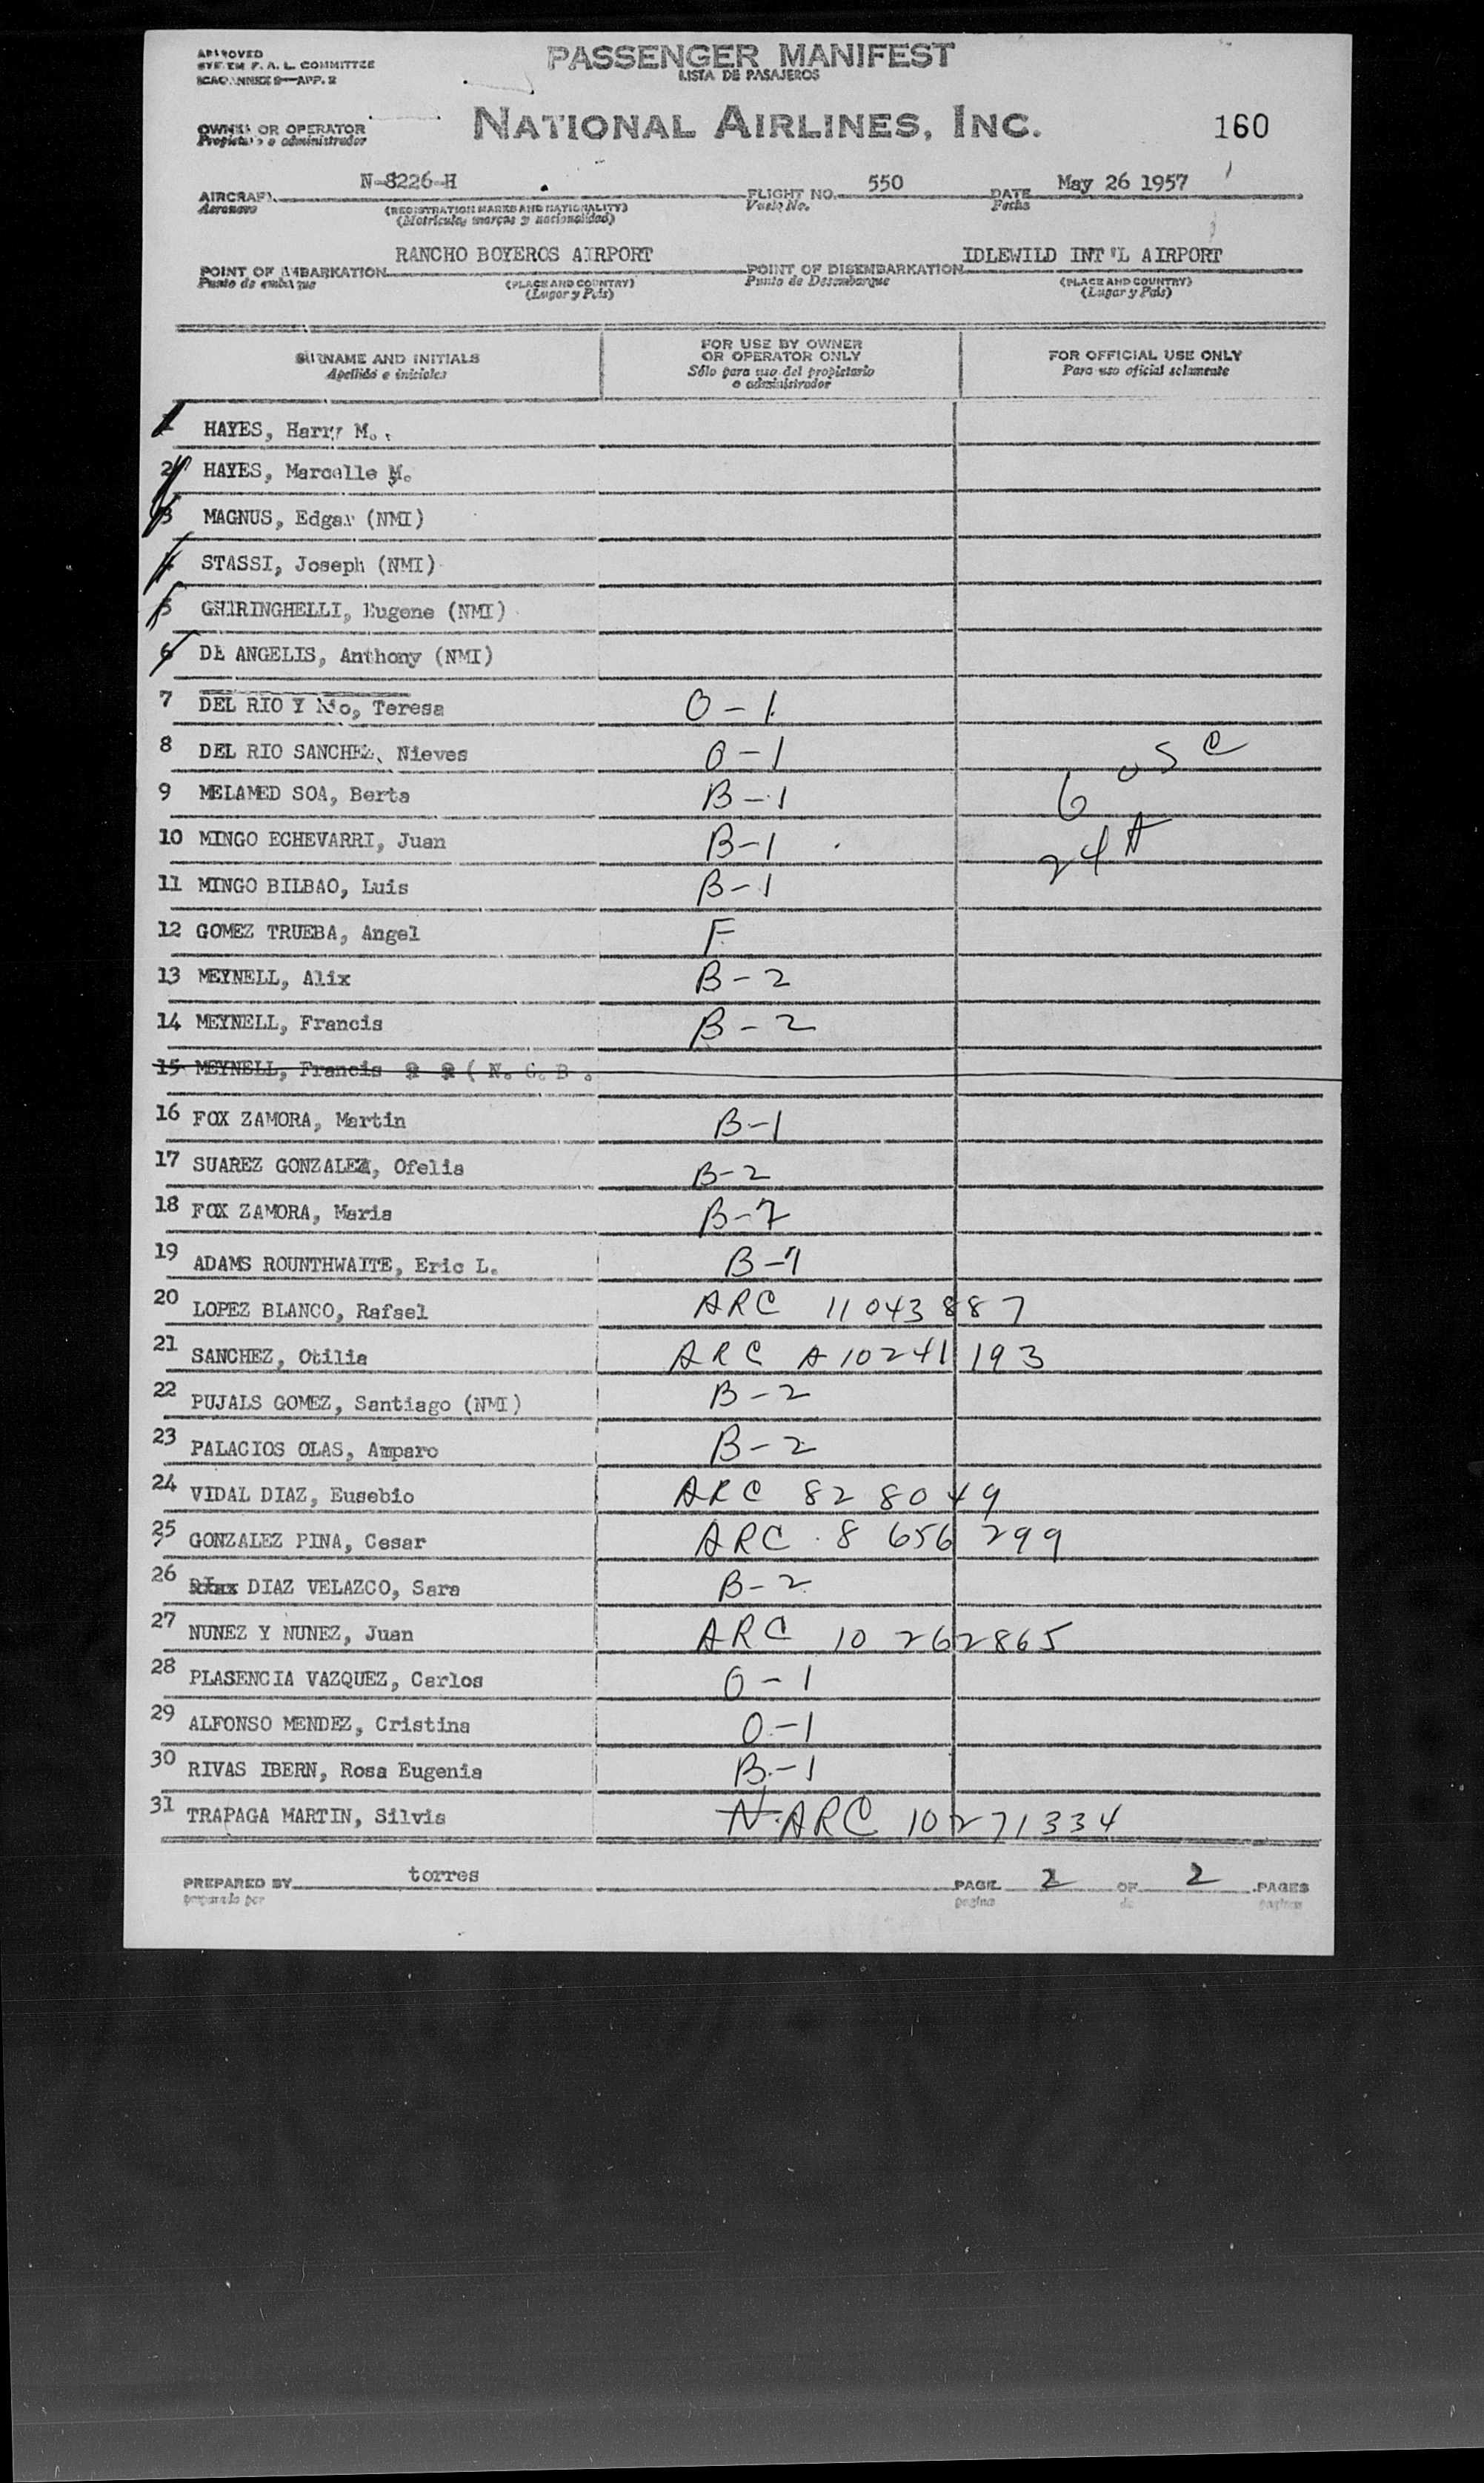 APPROVED
SYSTEM F. A. L. COMMITTEE
ICAO ANNEX 9—APP. 2
PASSENGER MANIFEST
LISTA DE PASAJEROS
OWNER OR OPERATOR
Propietario o administrador
NATIONAL AIRLINES, INC.
160
AIRCRAFT N-8226-H FLIGHT NO. 550 DATE May 26 1957
Aeronave (REGISTRATION MARKS AND NATIONALITY) Vuelo No. Fecha
(Matricula, marcas y nacionalidad)
POINT OF EMBARKATION RANCHO BOYEROS AIRPORT POINT OF DISEMBARKATION IDLEWILD INT'L AIRPORT
Punto de embarque (PLACE AND COUNTRY) Punto de Desembarque (PLACE AND COUNTRY)
(Lugar y Pais) (Lugar y Pais)
SURNAME AND INITIALS
Apellido e iniciales
FOR USE BY OWNER
OR OPERATOR ONLY
Sólo para uso del propietario
o administrador
FOR OFFICIAL USE ONLY
Para uso oficial solamente
1 HAYES, Harry M.
2 HAYES, Marcelle M.
3 MAGNUS, Edgar (NMI)
4 STASSI, Joseph (NMI)
5 GHIRINGHELLI, Eugene (NMI)
6 DE ANGELIS, Anthony (NMI)
7 DEL RIO Y Rio, Teresa O-1
8 DEL RIO SANCHEZ, Nieves O-1
6 USC
9 MELAMED SOA, Berta B-1
10 MINGO ECHEVARRI, Juan B-1
24 A
11 MINGO BILBAO, Luis B-1
12 GOMEZ TRUEBA, Angel F
13 MEYNELL, Alix B-2
14 MEYNELL, Francis B-2
15 MEYNELL, Francis ( N. G. B.
16 FOX ZAMORA, Martin B-1
17 SUAREZ GONZALEZ, Ofelia B-2
18 FOX ZAMORA, Maria B-2
19 ADAMS ROUNTHWAITE, Eric L. B-1
20 LOPEZ BLANCO, Rafael ARC 11043887
21 SANCHEZ, Otilia ARC A10241193
22 PUJALS GOMEZ, Santiago (NMI) B-2
23 PALACIOS OLAS, Amparo B-2
24 VIDAL DIAZ, Eusebio ARC 828049
25 GONZALEZ PINA, Cesar ARC 8 656 299
26 DIAZ VELAZCO, Sara B-2
27 NUNEZ Y NUNEZ, Juan ARC 10 262865
28 PLASENCIA VAZQUEZ, Carlos O-1
29 ALFONSO MENDEZ, Cristina O-1
30 RIVAS IBERN, Rosa Eugenia B-1
31 TRAPAGA MARTIN, Silvia N. ARC 10271334
PREPARED BY torres PAGE 2 OF 2 PAGES
preparado por pagina de paginas